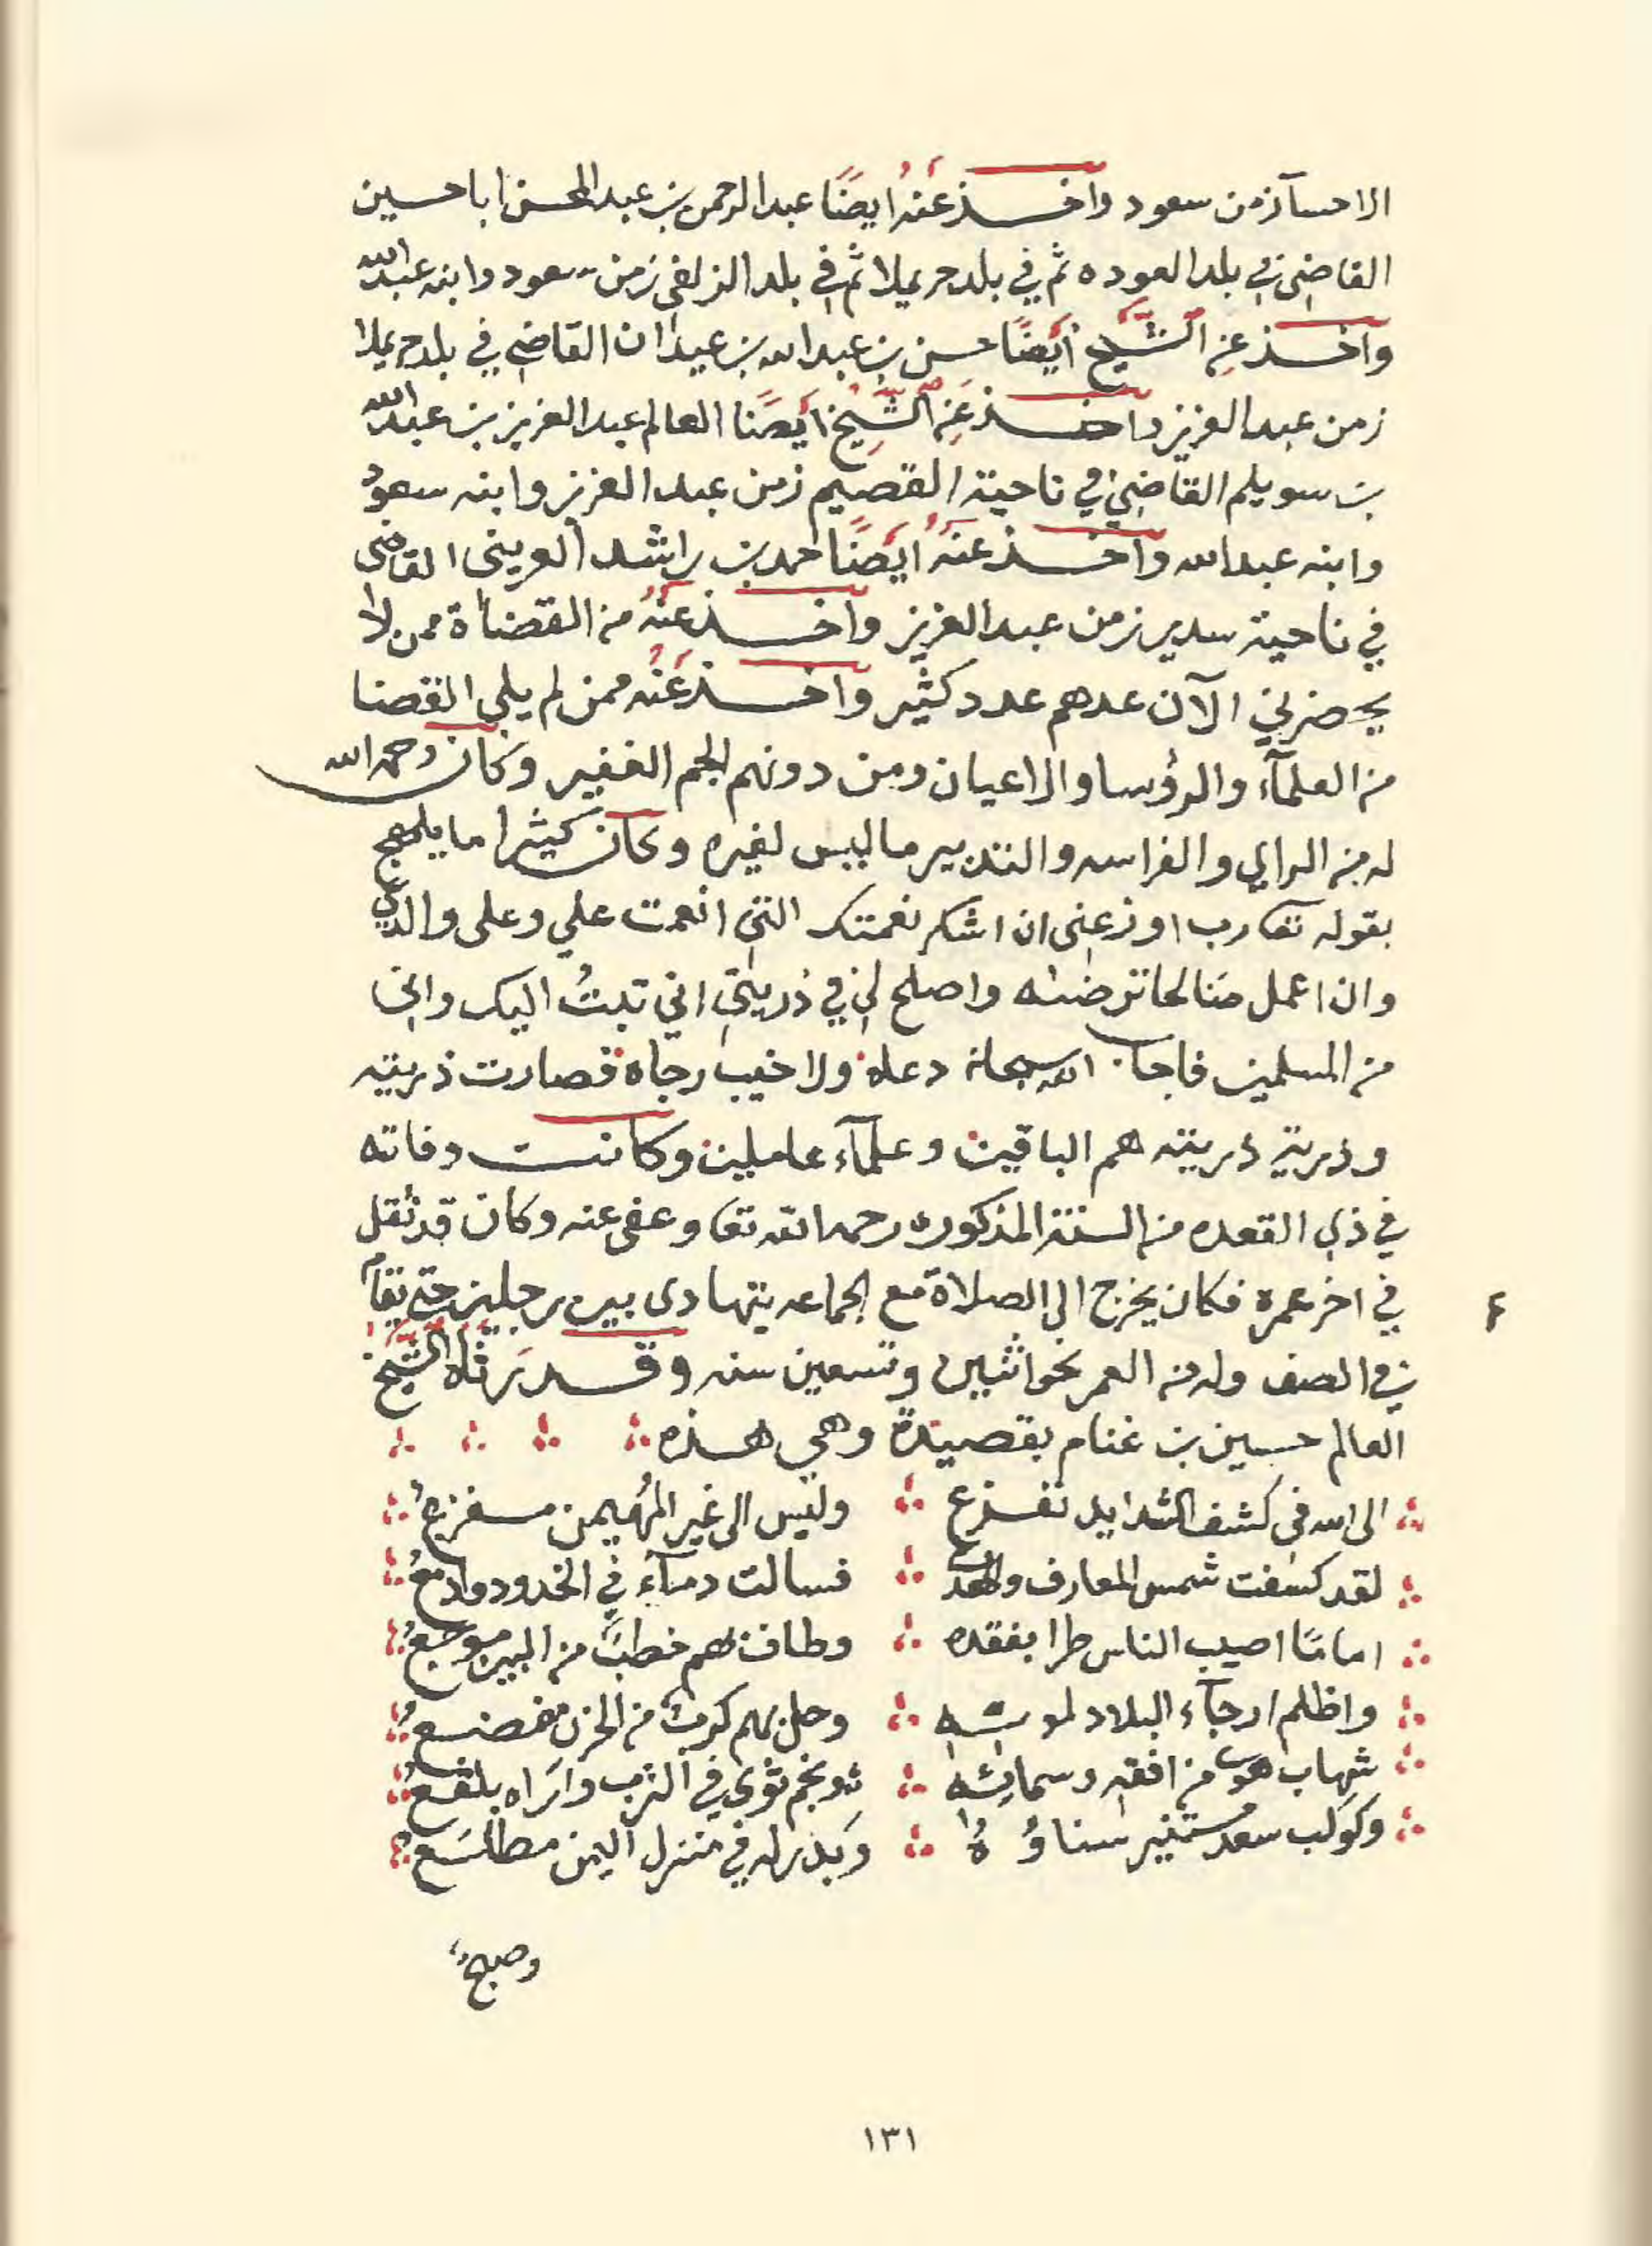 الاحسآ زمن سعود واخذ عَنْهُ ايضًا عبدالرحمن بن عبدالمحسن اباحسين
القاضي في بلد العوده ثم في بلد حريملا ثم في بلد الزلفي زمن سعود وابنه عبدالله
واخذ عن الشَّيخ ايَضًا حسن بن عبدالله بن عيدان القاضي في بلد حريملا
زمن عبدالعزيز واخذ عَنِ الشَّيخ ايَضًا العالم عبدالعزيز بن عبدالله
بن سويلم القاضي في ناحية القصيم زمن عبدالعزيز وابنه سعود
وابنه عبدالله واخذ عنهُ ايَضًا حمد بن راشد العريني القاضي
في ناحية سدير زمن عبدالعزيز واخذ عنْهُ من القضاة ممن لا
يحضرني الآن عدهم عدد كثير واخذ عَنْهُ ممن لم يلي القضا
من العلمآء والرؤسا والاعيان ومن دونهم الجم الغفير وكان رحمه الله
له من الراي والفراسه والتدبير ما ليس لغيره وكان كثيرا ما يلهج
بقوله تعا رب اوزعني ان اشكر نعمتك التي انعمت علي وعلى والدي
وان اعمل صالحا ترضاه واصلح لي في ذريتي اني تبتُ اليك واني
من المسلمين فاجاب الله سبحانه دعاه ولا خيب رجاه فصارت ذريته
وذرية ذريته هم الباقين وعلمآء عاملين وكانت وفاته
في ذي القعده من السنة المذكوره رحمه الله تعا وعفى عنه وكان قد ثقل
في اخر عمره فكان يخرج الى الصلاة مع الجماعه يتهادى بين رجلين حتى يقام
في الصف وله من العمر نحو اثنين وتسعين سنه وقد رَثاه الشَّيخ
العالم حسين بن غنام بقصيدة وهي هذه
الى الله في كشف الشدايد نفزع وليس الى غير المُهيمن مفزعُ
لقد كسفت شمس المعارف والهدى فسالت دمآء في الخدود وادمعُ
امامًا اصيب الناس طرا بفقده وطاف بهم خطبٌ من البين موجعُ
واظلم ارجآء البلاد لموته وحل بهم كربٌ من الحزن مفضعُ
شهاب هوى من افقه وسمائه ونجم ثوى في الترب واراه بلقعُ
وكوكب سعد مستنير سناؤُهُ وَبَدْر له في منزل اليمن مطلَعُ
وصبحٌ
١٣١